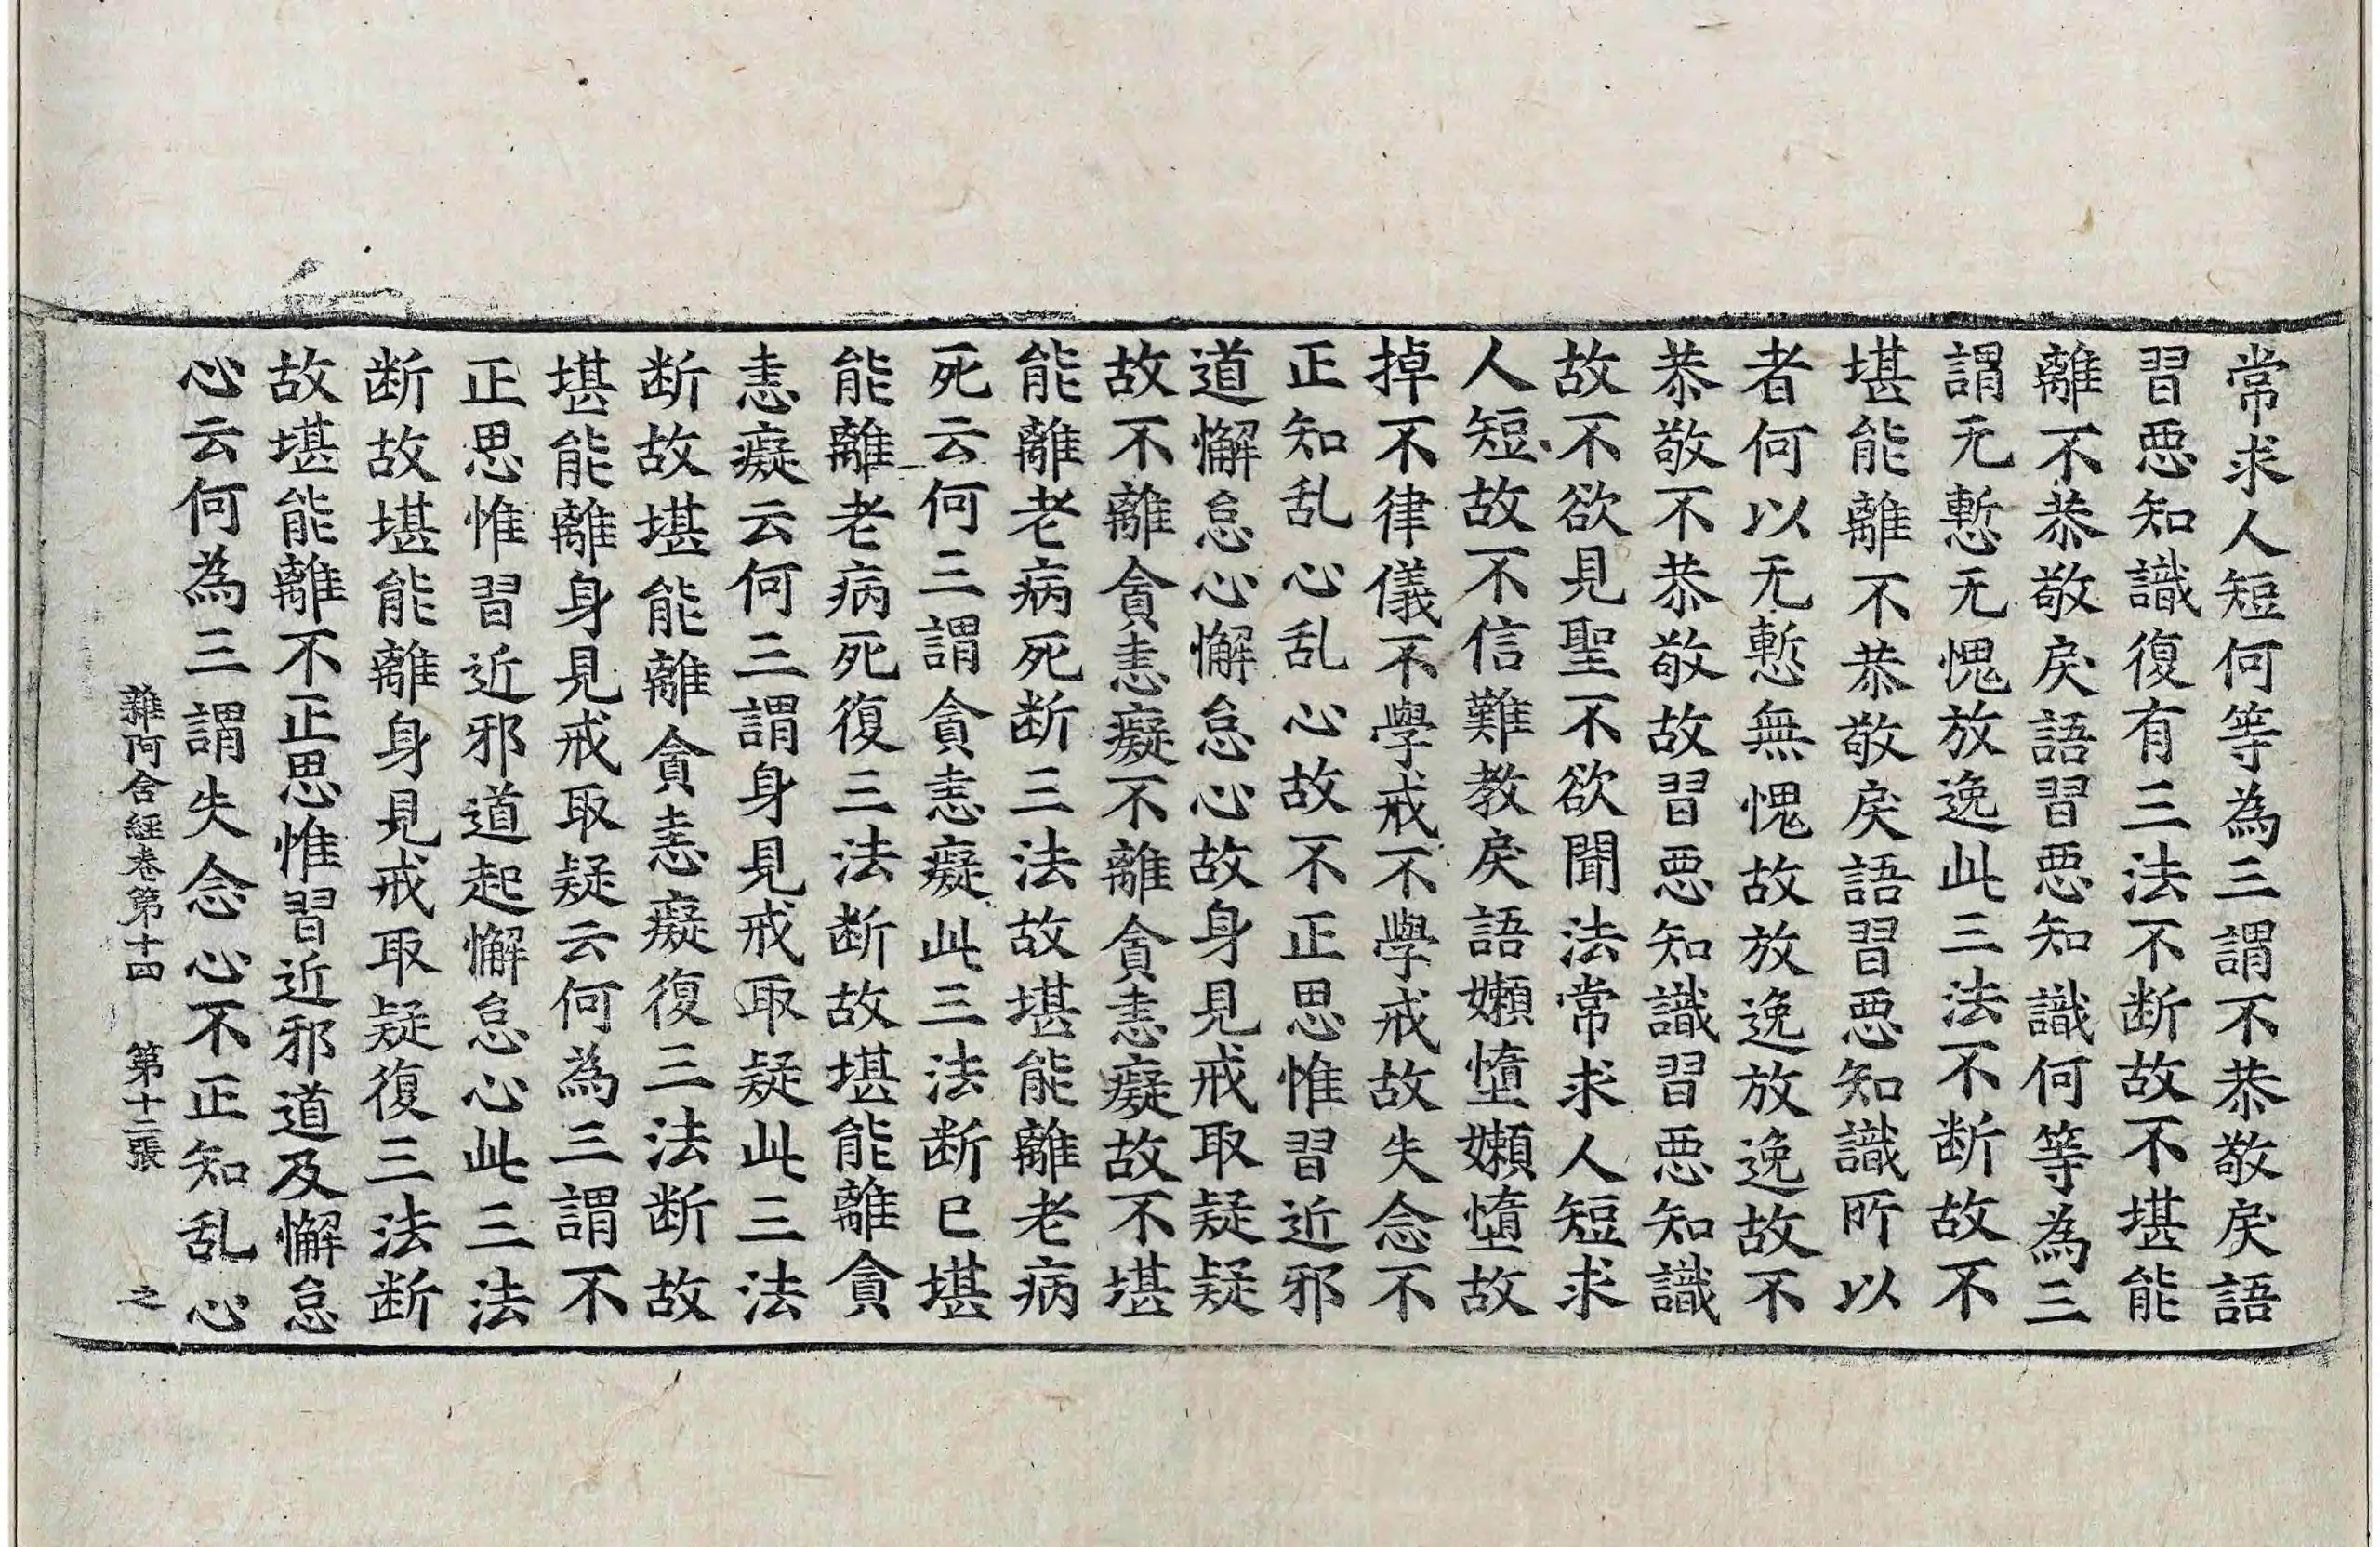 常求人短何等為三謂不恭敬戾語
習惡知識復有三法不断故不堪能
離不恭敬戾語習惡知識何等為三
謂无慙无愧放逸此三法不断故不
堪能離不恭敬戾語習惡知識所以
者何以无慙無愧故放逸放逸故不
恭敬不恭敬故習惡知識習惡知識
故不欲見聖不欲聞法常求人短求
人短故不信難教戾語嬾墮嬾墮故
掉不律儀不學戒不學戒故失念不
正知乱心乱心故不正思惟習近邪
道懈怠心懈怠心故身見戒取疑疑
故不離貪恚癡不離貪恚癡故不堪
能離老病死断三法故堪能離老病
死云何三謂貪恚癡此三法断已堪
能離老病死復三法断故堪能離貪
恚癡云何三謂身見戒取疑此三法
断故堪能離貪恚癡復三法断故
堪能離身見戒取疑云何為三謂不
正思惟習近邪道起懈怠心此三法
断故堪能離身見戒取疑復三法断
故堪能離不正思惟習近邪道及懈怠
心云何為三謂失念心不正知乱心
雜阿含經卷第十四 第十二張 之